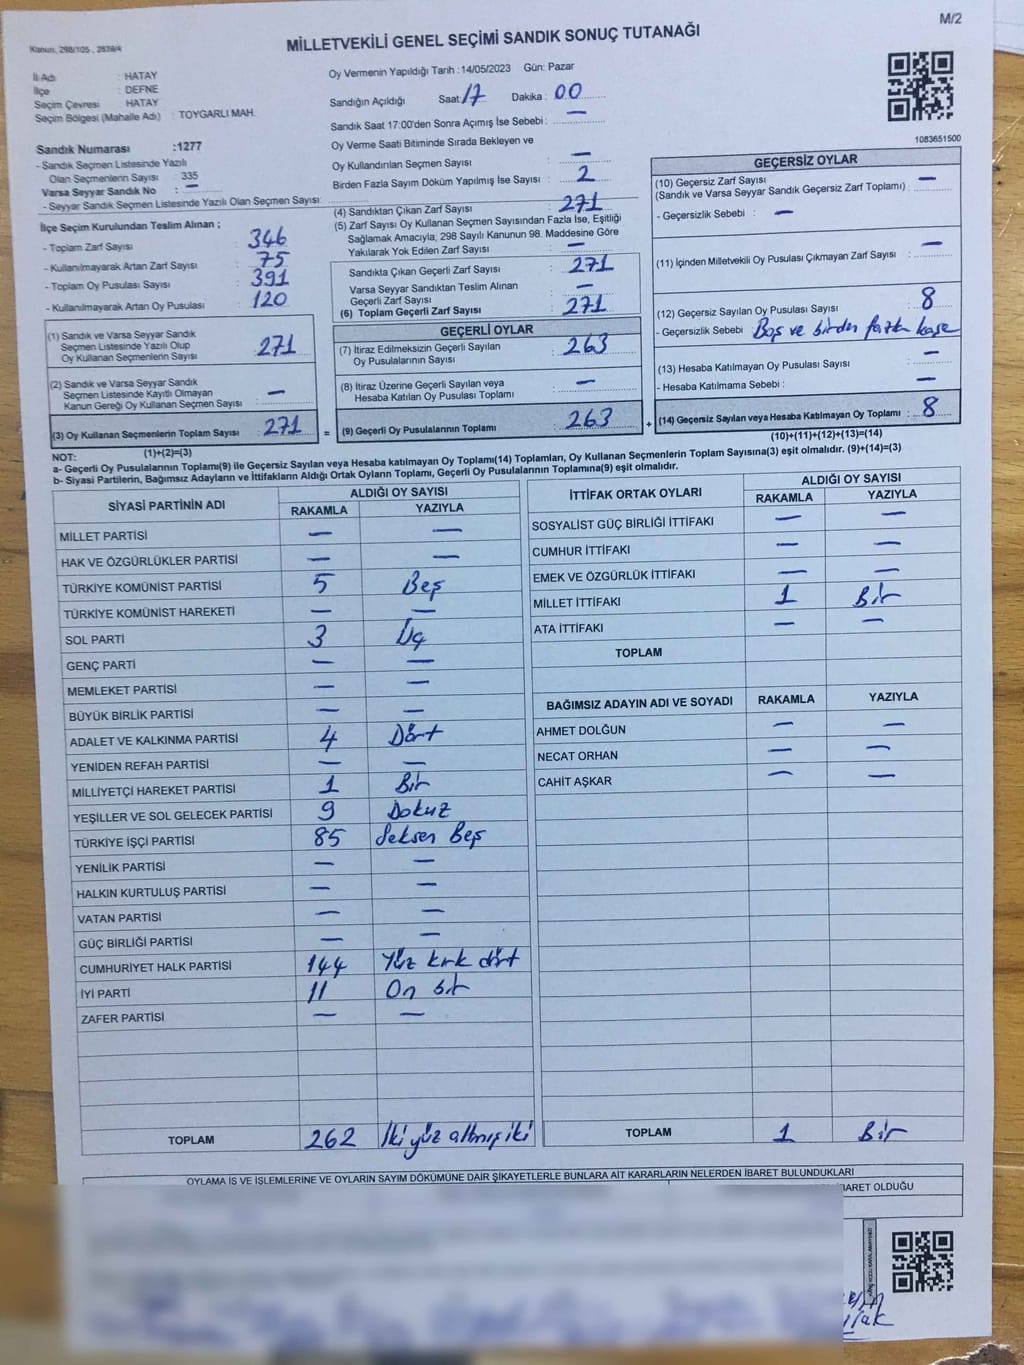 M/2
Kanun, 298/105 , 2839/4
MİLLETVEKİLİ GENEL SEÇİMİ SANDIK SONUÇ TUTANAĞI
İl Adı : HATAY
İlçe : DEFNE
Seçim Çevresi : HATAY
Seçim Bölgesi (Mahalle Adı) : TOYGARLI MAH.
Oy Vermenin Yapıldığı Tarih : 14/05/2023 Gün: Pazar
Sandığın Açıldığı Saat: 17 Dakika : 00
Sandık Saat 17:00'den Sonra Açımış İse Sebebi : —
Oy Verme Saati Bitiminde Sırada Bekleyen ve
Oy Kullandırılan Seçmen Sayısı : —
Birden Fazla Sayım Döküm Yapılmış İse Sayısı : 2
1083651500
Sandık Numarası :1277
- Sandık Seçmen Listesinde Yazılı
Olan Seçmenlerin Sayısı : 335
Varsa Seyyar Sandık No : —
- Seyyar Sandık Seçmen Listesinde Yazılı Olan Seçmen Sayısı:
İlçe Seçim Kurulundan Teslim Alınan ;
- Toplam Zarf Sayısı : 346
- Kullanılmayarak Artan Zarf Sayısı : 75
- Toplam Oy Pusulası Sayısı : 391
- Kullanılmayarak Artan Oy Pusulası : 120
(1) Sandık ve Varsa Seyyar Sandık
Seçmen Listesinde Yazılı Olup
Oy Kullanan Seçmenlerin Sayısı : 271
(2) Sandık ve Varsa Seyyar Sandık
Seçmen Listesinde Kayıtlı Olmayan
Kanun Gereği Oy Kullanan Seçmen Sayısı : —
(3) Oy Kullanan Seçmenlerin Toplam Sayısı : 271
(1)+(2)=(3)
(4) Sandıktan Çıkan Zarf Sayısı : 271
(5) Zarf Sayısı Oy Kullanan Seçmen Sayısından Fazla İse, Eşitliği
Sağlamak Amacıyla, 298 Sayılı Kanunun 98. Maddesine Göre
Yakılarak Yok Edilen Zarf Sayısı : —
Sandıkta Çıkan Geçerli Zarf Sayısı : 271
Varsa Seyyar Sandıktan Teslim Alınan
Geçerli Zarf Sayısı : —
(6) Toplam Geçerli Zarf Sayısı : 271
GEÇERLİ OYLAR
(7) İtiraz Edilmeksizin Geçerli Sayılan
Oy Pusulalarının Sayısı : 263
(8) İtiraz Üzerine Geçerli Sayılan veya
Hesaba Katılan Oy Pusulası Toplamı : —
= (9) Geçerli Oy Pusulalarının Toplamı : 263 +
GEÇERSİZ OYLAR
(10) Geçersiz Zarf Sayısı
(Sandık ve Varsa Seyyar Sandık Geçersiz Zarf Toplamı) : —
- Geçersizlik Sebebi : —
(11) İçinden Milletvekili Oy Pusulası Çıkmayan Zarf Sayısı : —
(12) Geçersiz Sayılan Oy Pusulası Sayısı : 8
- Geçersizlik Sebebi : Boş ve birden fazla kaşe
(13) Hesaba Katılmayan Oy Pusulası Sayısı : —
- Hesaba Katılmama Sebebi : —
(14) Geçersiz Sayılan veya Hesaba Katılmayan Oy Toplamı : 8
(10)+(11)+(12)+(13)=(14)
NOT:
a- Geçerli Oy Pusulalarının Toplamı(9) ile Geçersiz Sayılan veya Hesaba katılmayan Oy Toplamı(14) Toplamları, Oy Kullanan Seçmenlerin Toplam Sayısına(3) eşit olmalıdır. (9)+(14)=(3)
b- Siyasi Partilerin, Bağımsız Adayların ve İttifakların Aldığı Ortak Oyların Toplamı, Geçerli Oy Pusulalarının Toplamına(9) eşit olmalıdır.
SİYASİ PARTİNİN ADI ALDIĞI OY SAYISI
RAKAMLA YAZIYLA
MİLLET PARTİSİ — —
HAK VE ÖZGÜRLÜKLER PARTİSİ — —
TÜRKİYE KOMÜNİST PARTİSİ 5 Beş
TÜRKİYE KOMÜNİST HAREKETİ — —
SOL PARTİ 3 Üç
GENÇ PARTİ — —
MEMLEKET PARTİSİ — —
BÜYÜK BİRLİK PARTİSİ — —
ADALET VE KALKINMA PARTİSİ 4 Dört
YENİDEN REFAH PARTİSİ — —
MİLLİYETÇİ HAREKET PARTİSİ 1 Bir
YEŞİLLER VE SOL GELECEK PARTİSİ 9 Dokuz
TÜRKİYE İŞÇİ PARTİSİ 85 Seksen Beş
YENİLİK PARTİSİ — —
HALKIN KURTULUŞ PARTİSİ — —
VATAN PARTİSİ — —
GÜÇ BİRLİĞİ PARTİSİ — —
CUMHURİYET HALK PARTİSİ 144 Yüz kırk dört
İYİ PARTİ 11 On bir
ZAFER PARTİSİ — —
TOPLAM 262 İki yüz altmış iki
İTTİFAK ORTAK OYLARI ALDIĞI OY SAYISI
RAKAMLA YAZIYLA
SOSYALİST GÜÇ BİRLİĞİ İTTİFAKI — —
CUMHUR İTTİFAKI — —
EMEK VE ÖZGÜRLÜK İTTİFAKI — —
MİLLET İTTİFAKI 1 Bir
ATA İTTİFAKI — —
TOPLAM
BAĞIMSIZ ADAYIN ADI VE SOYADI RAKAMLA YAZIYLA
AHMET DOLĞUN — —
NECAT ORHAN — —
CAHİT AŞKAR — —
TOPLAM 1 Bir
OYLAMA İŞ VE İŞLEMLERİNE VE OYLARIN SAYIM DÖKÜMÜNE DAİR ŞİKAYETLERLE BUNLARA AİT KARARLARIN NELERDEN İBARET BULUNDUKLARI
İBARET OLDUĞU